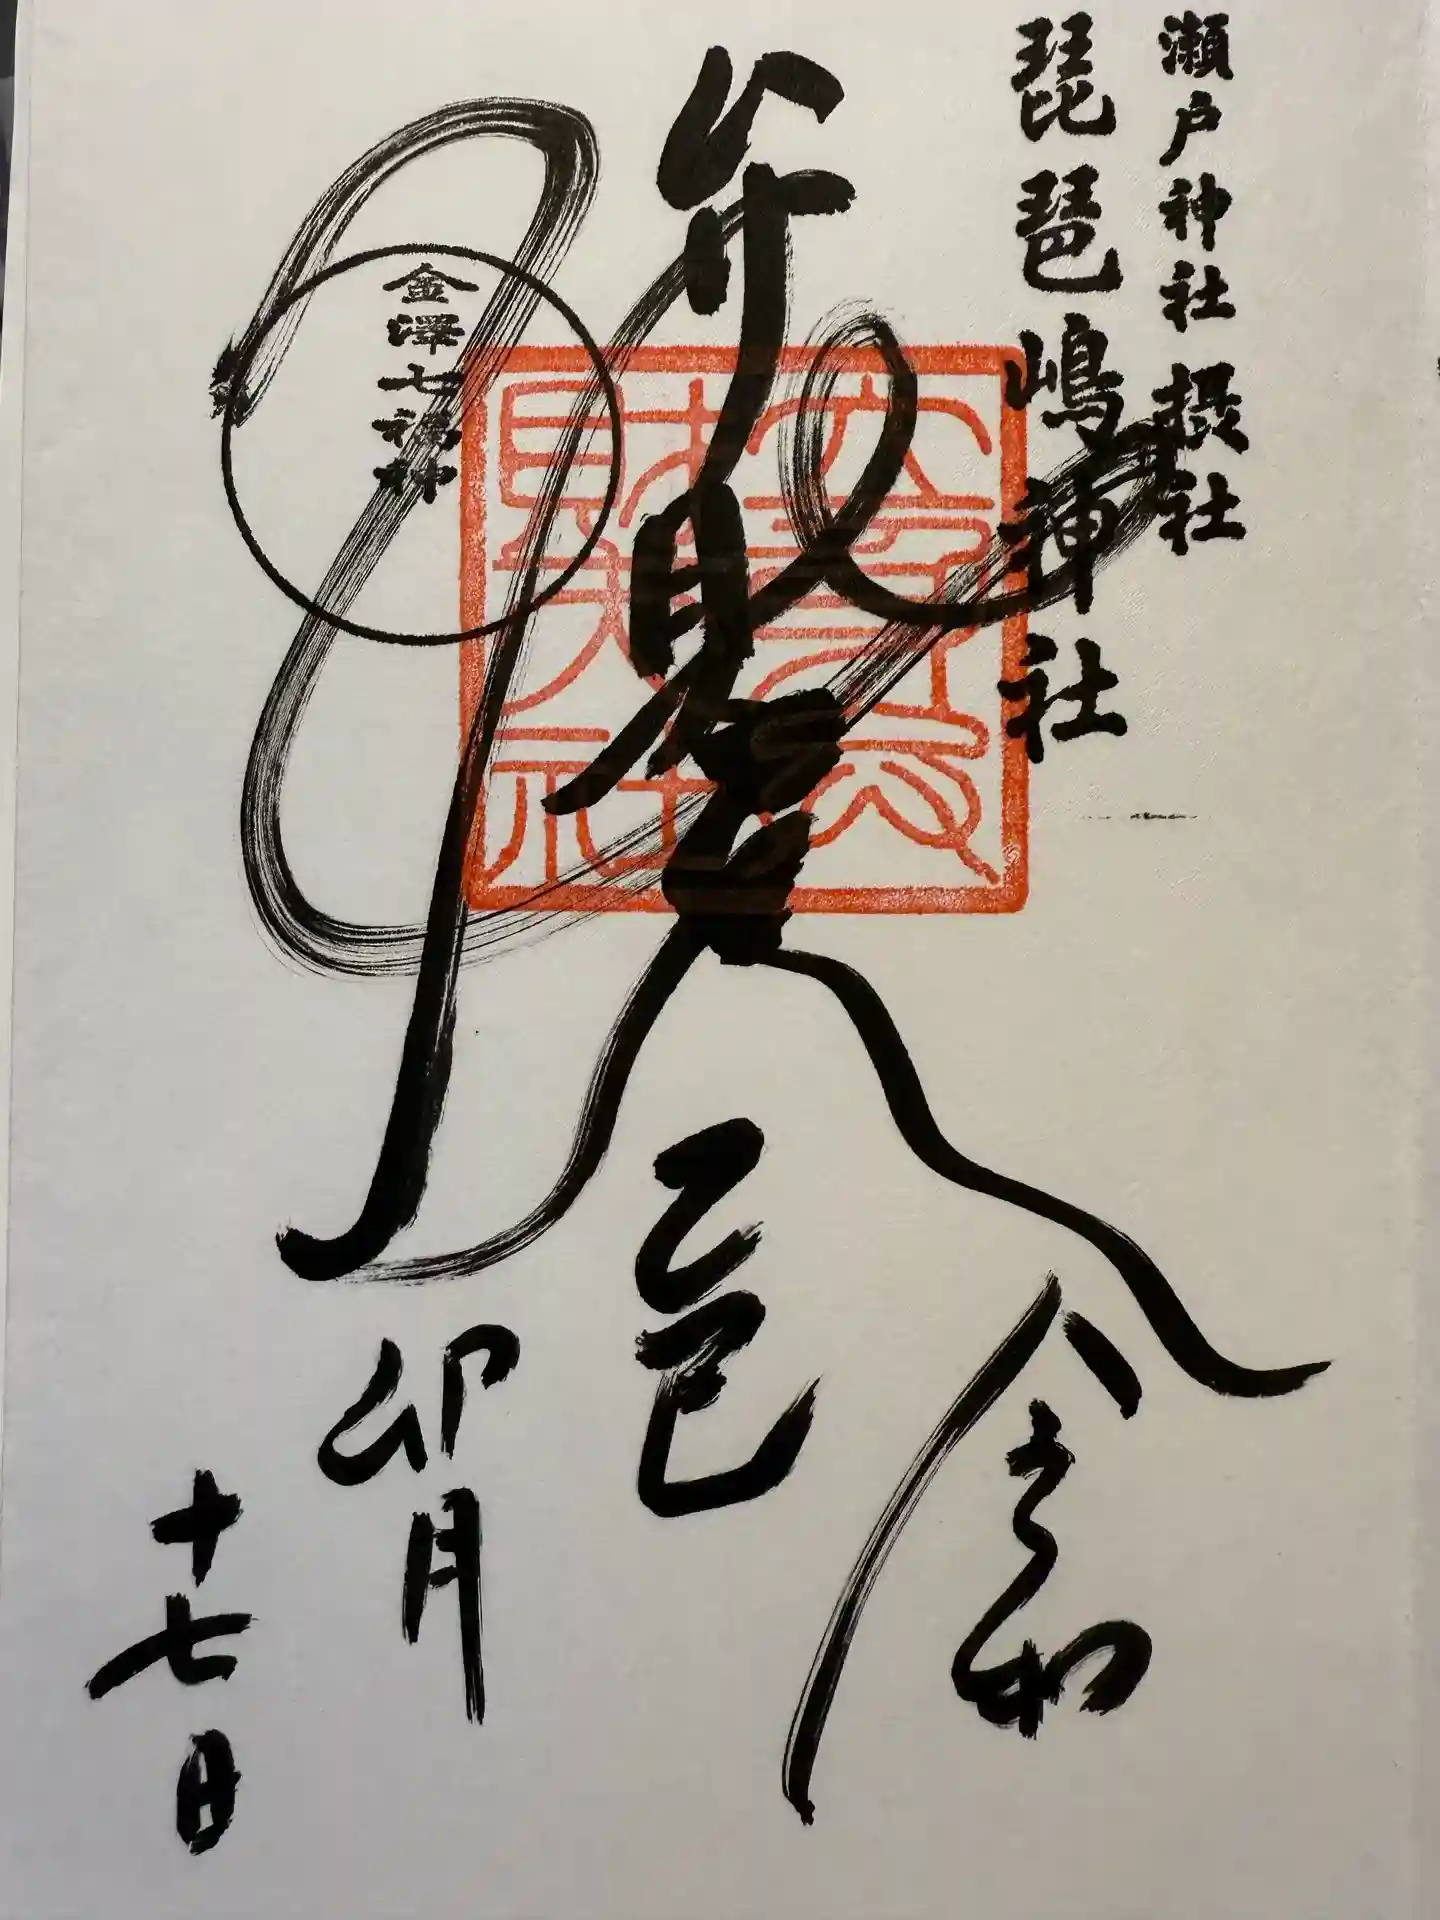 瀬戸神社 摂社
琵琶嶋神社
弁財
金澤七福神
令和
乙巳
卯月
十七日